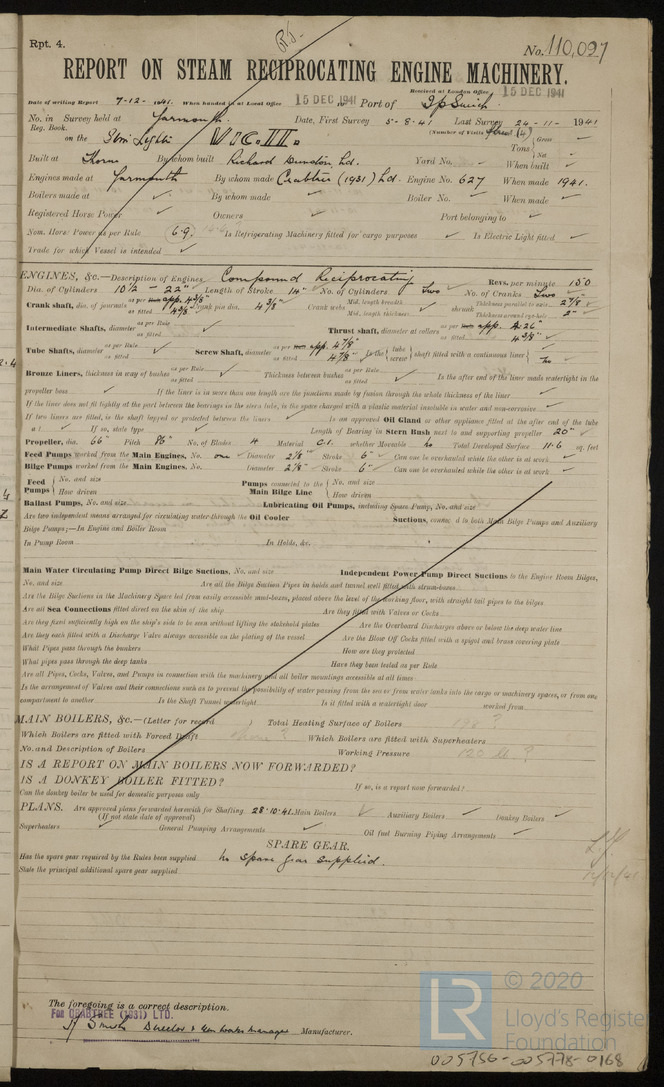 Rpt. 4.
No. 110,027
REPORT ON STEAM RECIPROCATING ENGINE MACHINERY.
Received at London Office 15 DEC 1941
Date of writing Report 7-12-1941. When handed in at Local Office 15 DEC 1941 Port of Ipswich.
No. in Survey held at Yarmouth. Date, First Survey 5-8-41 Last Survey 24-11-1941
Reg. Book. (Number of Visits (4)
on the VIC. III. Tons Gross
Net
Built at Thorne By whom built Richard Dunston Ltd. Yard No. When built
Engines made at Yarmouth By whom made Crabtree (1931) Ltd. Engine No. 627 When made 1941.
Boilers made at By whom made Boiler No. When made
Registered Horse Power Owners Port belonging to
Nom. Horse Power as per Rule 69 Is Refrigerating Machinery fitted for cargo purposes Is Electric Light fitted
Trade for which Vessel is intended
ENGINES, &c.—Description of Engines Compound Reciprocating Revs. per minute 150
Dia. of Cylinders 10½ - 22" Length of Stroke 14" No. of Cylinders Two No. of Cranks Two
Crank shaft, dia. of journals as per Rule app. 4⅜" as fitted 4⅜" Crank pin dia. 4⅜" Crank webs Mid. length breadth Mid. length thickness shrunk Thickness parallel to axis 2⅞" Thickness around eye-hole 2"
Intermediate Shafts, diameter as per Rule as fitted Thrust shaft, diameter at collars as per Rule app. 4.26" as fitted 4⅜"
Tube Shafts, diameter as per Rule as fitted Screw Shaft, diameter as per Rule app. 4⅞" as fitted 4⅞" Is the tube screw shaft fitted with a continuous liner No
Bronze Liners, thickness in way of bushes as per Rule as fitted Thickness between bushes as per Rule as fitted Is the after end of the liner made watertight in the
propeller boss If the liner is in more than one length are the junctions made by fusion through the whole thickness of the liner
If the liner does not fit tightly at the part between the bearings in the stern tube, is the space charged with a plastic material insoluble in water and non-corrosive
If two liners are fitted, is the shaft lapped or protected between the liners Is an approved Oil Gland or other appliance fitted at the after end of the tube
If so, state type Length of Bearing in Stern Bush next to and supporting propeller 20"
Propeller, dia. 66" Pitch 86" No. of Blades 4 Material C.I. whether Moveable No Total Developed Surface 11.6 sq. feet
Feed Pumps worked from the Main Engines, No. one Diameter 2⅛" Stroke 6" Can one be overhauled while the other is at work
Bilge Pumps worked from the Main Engines, No. Diameter 2⅛" Stroke 6" Can one be overhauled while the other is at work
Feed Pumps No. and size How driven Pumps connected to the Main Bilge Line No. and size How driven
Ballast Pumps, No. and size Lubricating Oil Pumps, including Spare Pump, No. and size
Are two independent means arranged for circulating water through the Oil Cooler Suctions, connected to both Main Bilge Pumps and Auxiliary
Bilge Pumps;—In Engine and Boiler Room
In Pump Room In Holds, &c.
Main Water Circulating Pump Direct Bilge Suctions, No. and size Independent Power Pump Direct Suctions to the Engine Room Bilges,
No. and size Are all the Bilge Suction Pipes in holds and tunnel well fitted with strum-boxes
Are the Bilge Suctions in the Machinery Space led from easily accessible mud-boxes, placed above the level of the working floor, with straight tail pipes to the bilges
Are all Sea Connections fitted direct on the skin of the ship Are they fitted with Valves or Cocks
Are they fixed sufficiently high on the ship's side to be seen without lifting the stokehold plates Are the Overboard Discharges above or below the deep water line
Are they each fitted with a Discharge Valve always accessible on the plating of the vessel Are the Blow Off Cocks fitted with a spigot and brass covering plate
What Pipes pass through the bunkers How are they protected
What pipes pass through the deep tanks Have they been tested as per Rule
Are all Pipes, Cocks, Valves, and Pumps in connection with the machinery and all boiler mountings accessible at all times
Is the arrangement of Valves and their connections such as to prevent the possibility of water passing from the sea or from water tanks into the cargo or machinery spaces, or from one
compartment to another Is the Shaft Tunnel watertight Is it fitted with a watertight door worked from
MAIN BOILERS, &c.—(Letter for record Total Heating Surface of Boilers
Which Boilers are fitted with Forced Draft Which Boilers are fitted with Superheaters
No. and Description of Boilers Working Pressure 120 lb. ?
IS A REPORT ON MAIN BOILERS NOW FORWARDED?
IS A DONKEY BOILER FITTED? If so, is a report now forwarded?
Can the donkey boiler be used for domestic purposes only
PLANS. Are approved plans forwarded herewith for Shafting 28.10.41. Main Boilers Auxiliary Boilers Donkey Boilers
(If not state date of approval)
Superheaters General Pumping Arrangements Oil fuel Burning Piping Arrangements
SPARE GEAR.
Has the spare gear required by the Rules been supplied No Spare Gear Supplied.
State the principal additional spare gear supplied
The foregoing is a correct description.
For CRABTREE (1931) LTD.
Smith Director & Manager Manufacturer.
LR
© 2020
Lloyd's Register
Foundation
005756-005778-0168